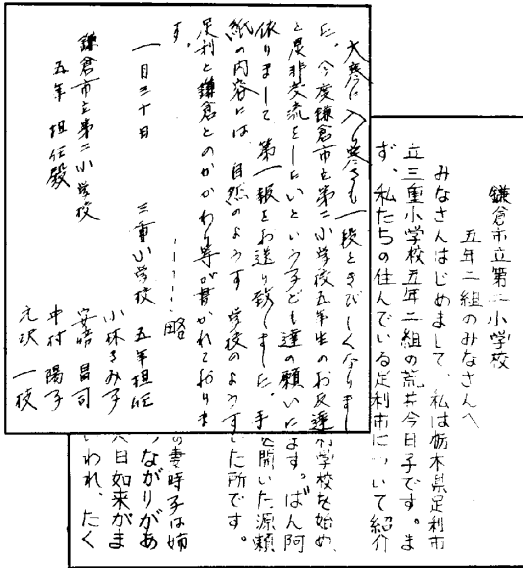 鎌倉市立第二小学校
五年二組のみなさんへ
みなさんはじめまして、私は栃木県足利市
立三重小学校五年二組の荒井今日子です。ま
ず、私たちの住んでいる足利市について紹介
学校を始め、
ます。ばん阿
を開いた源頼
た所です。
の妻時子は姉
つながりがあ
大日如来がま
いわれ、たく
大寒に入り寒さも一段ときびしくなりまし
た。今度鎌倉市立第二小学校五年生のお友達
と是非交流をしたいという子ども達の願いに
依りまして、第一報をお送り致しました。手
紙の内容には、自然のようす、学校のようす
足利と鎌倉とのかかわり等が書かれておりま
す。
略
一月三十日 三重小学校 五年担任
小林きみ子
昌司
中村陽子
元沢一枝
鎌倉市立第二小学校
五年 担任殿